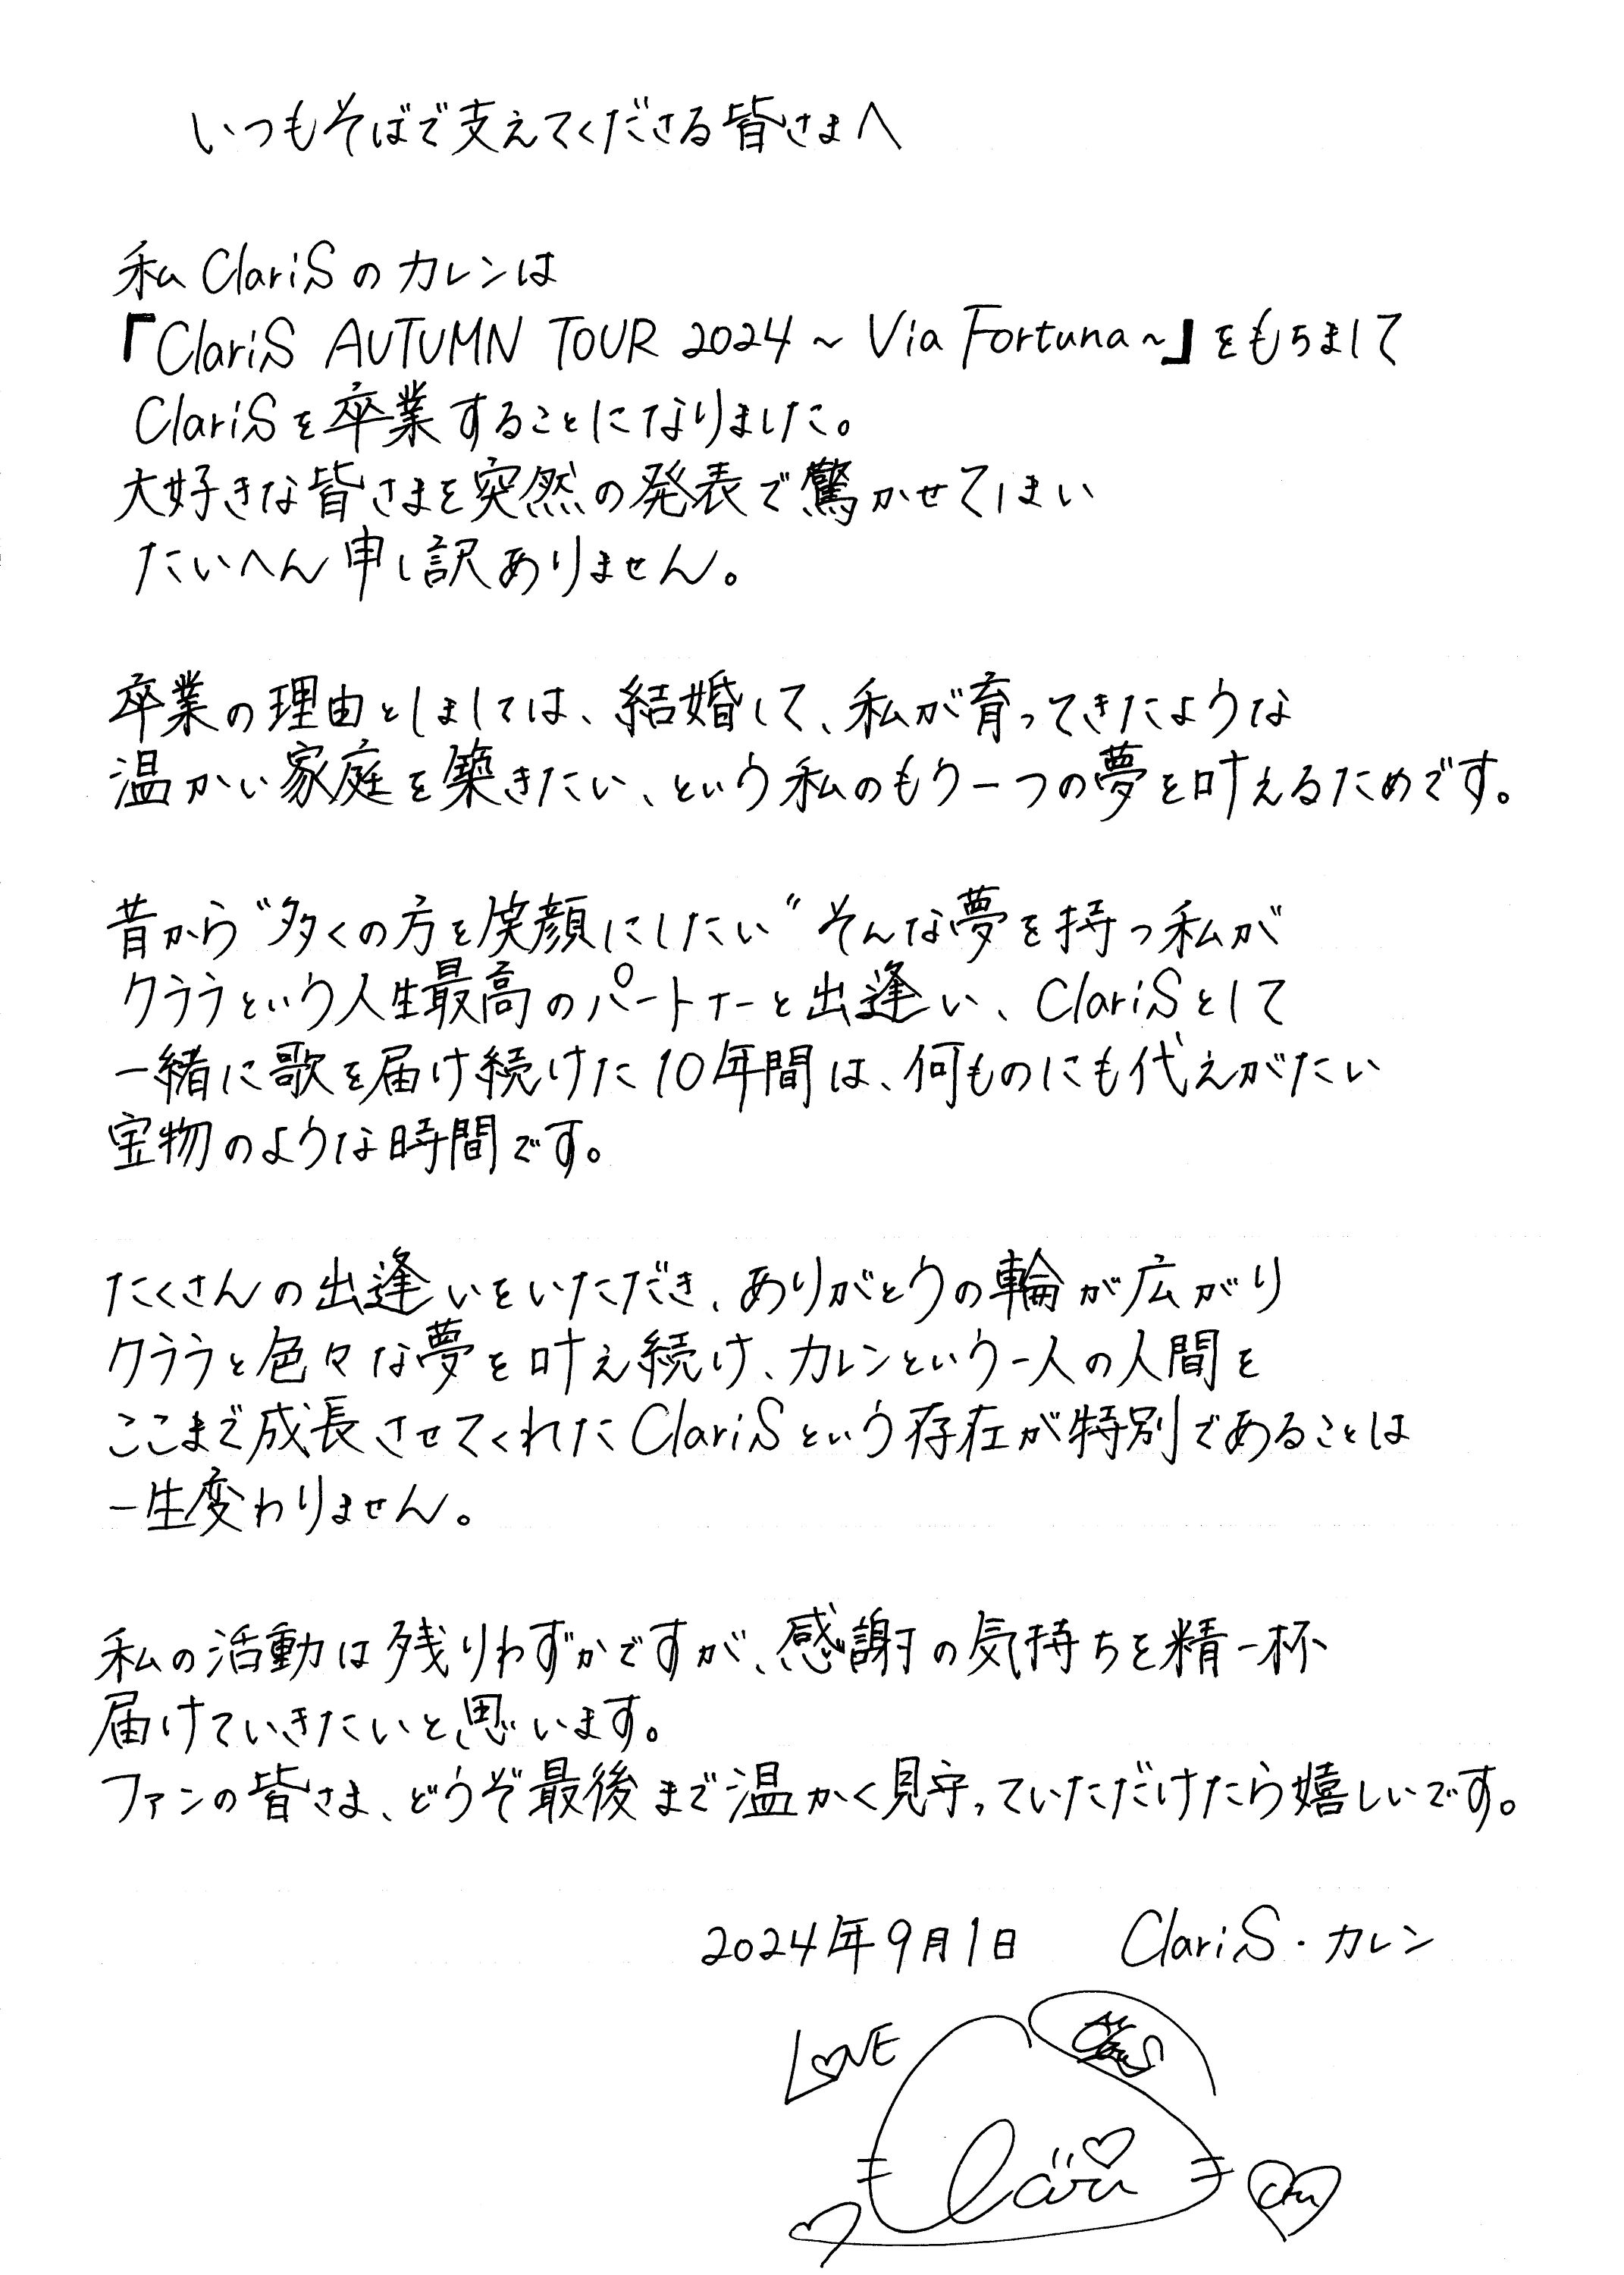 いつもそばで支えてくださる皆さまへ
私 ClariS の カレンは
「ClariS AUTUMN TOUR 2024 ~ Via Fortuna ~」をもちまして
ClariSを卒業することになりました。
大好きな皆さまを突然の発表で驚かせてしまい
たいへん申し訳ありません。
卒業の理由としましては、結婚して、私が育ってきたような
温かい家庭を築きたい、という私のもう一つの夢を叶えるためです。
昔から“多くの方を笑顔にしたい”そんな夢を持つ私が
クララという人生最高のパートナーと出逢い、ClariSとして
一緒に歌を届け続けた10年間は、何ものにも代えがたい
宝物のような時間です。
たくさんの出逢いをいただき、ありがとうの輪が広がり
クララと色々な夢を叶え続け、カレンという一人の人間を
ここまで成長させてくれたClariSという存在が特別であることは
一生変わりません。
私の活動は残りわずかですが、感謝の気持ちを精一杯
届けていきたいと思います。
ファンの皆さま、どうぞ最後まで温かく見守っていただけたら嬉しいです。
2024年9月1日 ClariS・カレン
LOVE